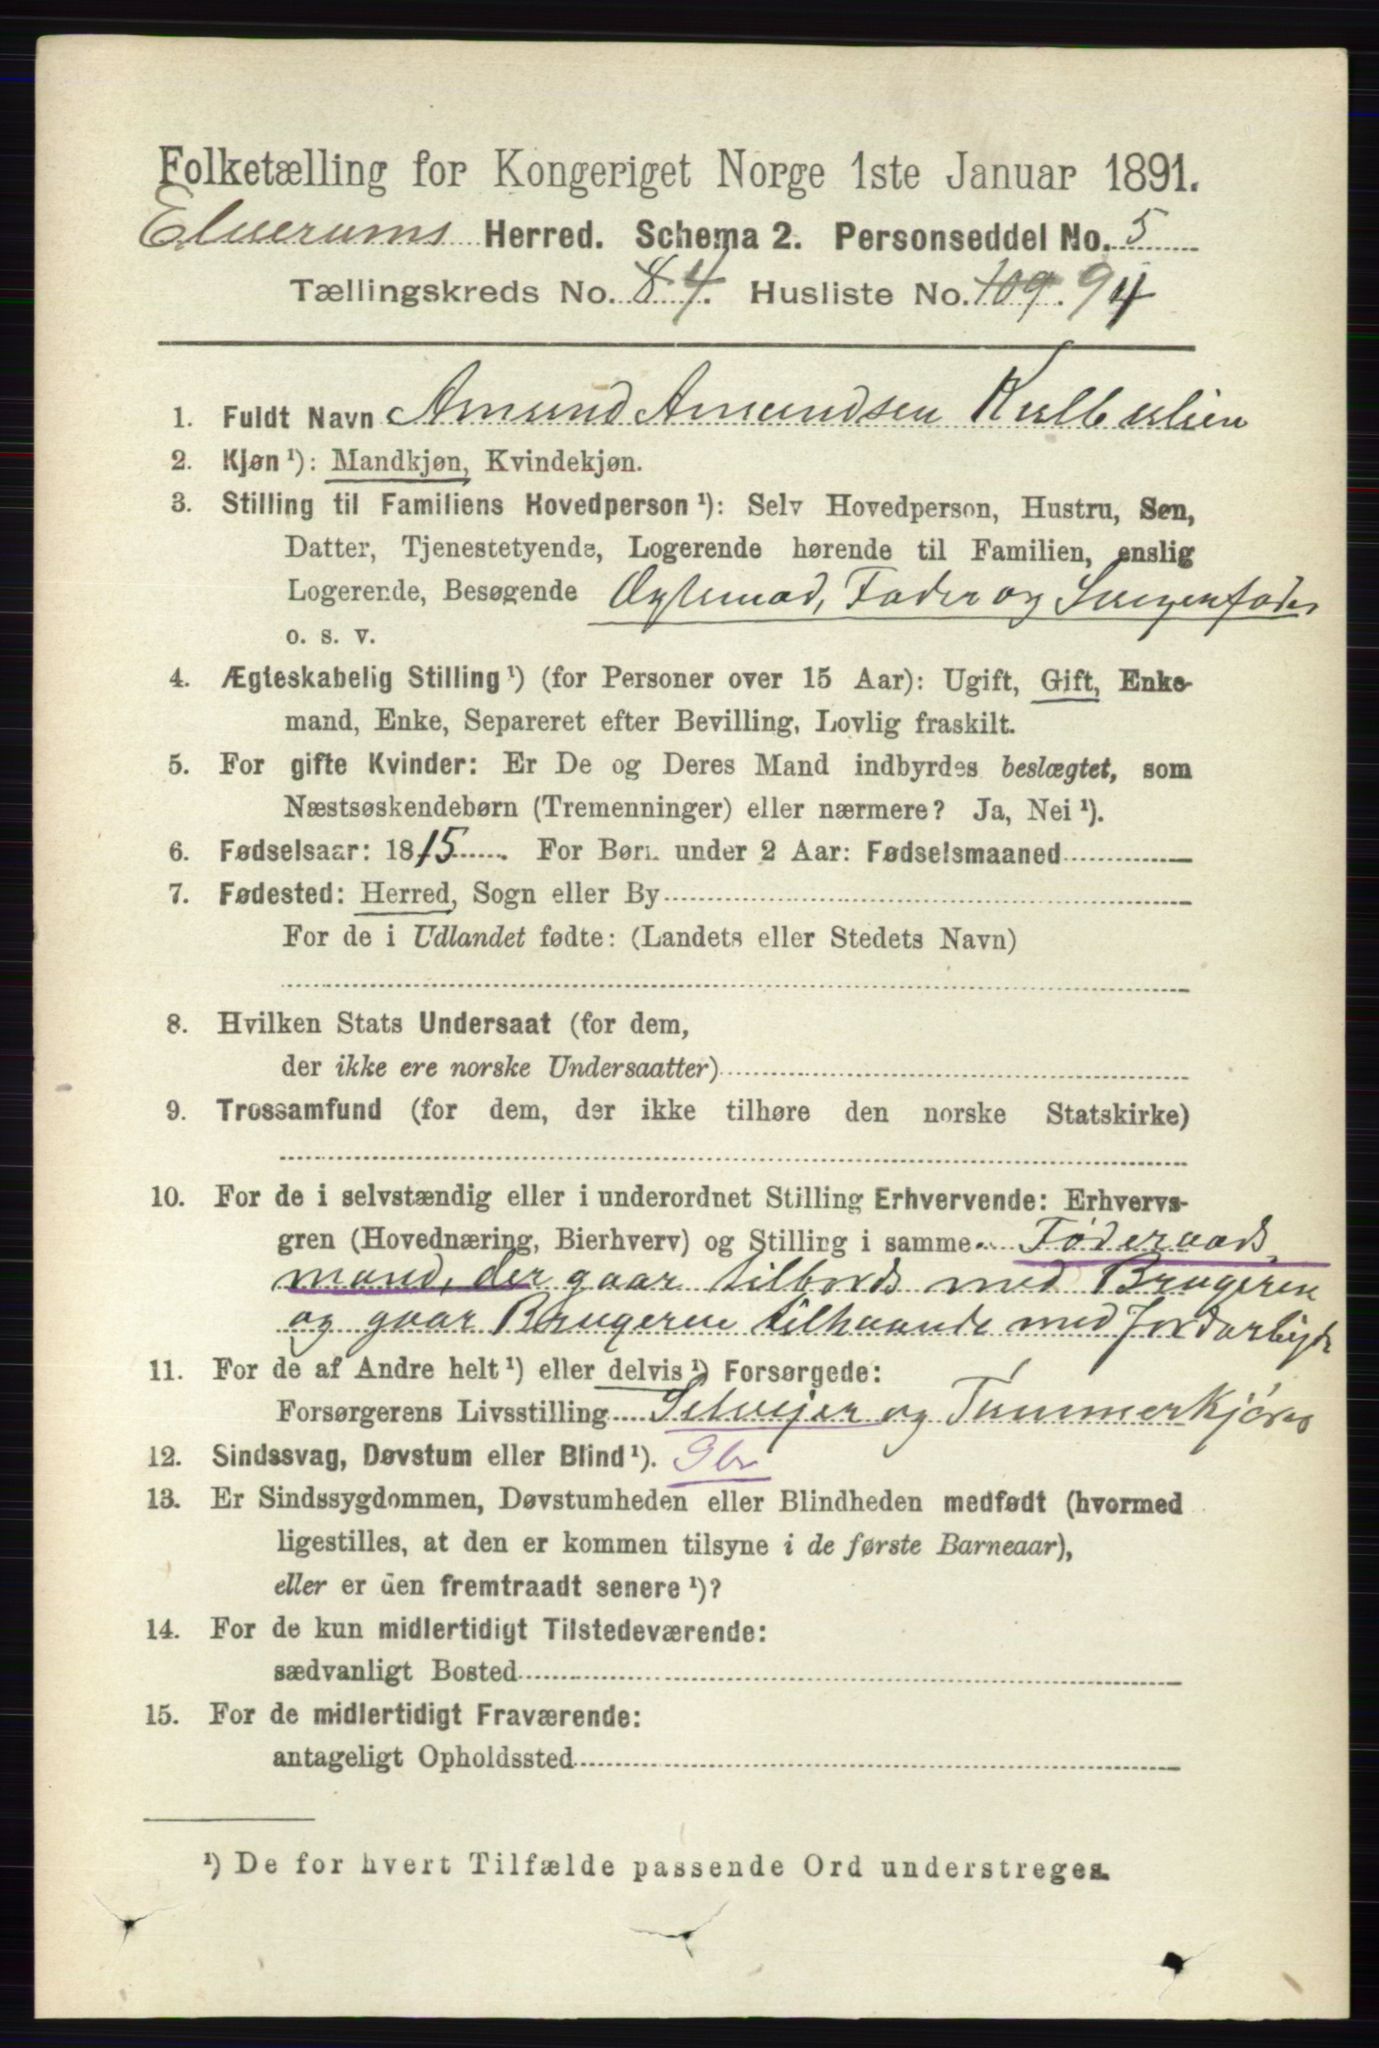 Folketælling for Kongeriget Norge 1ste Januar 1891.
Elverums Herred. Schema 2. Personseddel No. 5
Tællingskreds No. 8 4. Husliste No. 109. 94
1. Fuldt Navn Amund Amundsen Kulbulien
2. Kjøn ¹): Mandkjøn, Kvindekjøn.
3. Stilling til Familiens Hovedperson ¹): Selv Hovedperson, Hustru, Søn,
Datter, Tjenestetyende, Logerende hørende til Familien, enslig
Logerende, Besøgende Ægtemad, Fader og Svigerfader
o. s. v.
4. Ægteskabelig Stilling ¹) (for Personer over 15 Aar): Ugift, Gift, Enke-
mand, Enke, Separeret efter Bevilling, Lovlig fraskilt.
5. For gifte Kvinder: Er De og Deres Mand indbyrdes beslægtet, som
Næstsøskendebørn (Tremenninger) eller nærmere? Ja, Nei ¹).
6. Fødselsaar: 1815. For Børn under 2 Aar: Fødselsmaaned
7. Fødested: Herred, Sogn eller By
For de i Udlandet fødte: (Landets eller Stedets Navn)
8. Hvilken Stats Undersaat (for dem,
der ikke ere norske Undersaatter)
9. Trossamfund (for dem, der ikke tilhøre den norske Statskirke)
10. For de i selvstændig eller i underordnet Stilling Erhvervende: Erhvervs-
gren (Hovednæring, Bierhverv) og Stilling i samme Føderaads
mand, der gaar tilbords med Brugeren
og gaar Brugeren tilhaande med Jordarbejde
11. For de af Andre helt ¹) eller delvis ¹) Forsørgede:
Forsørgerens Livsstilling Selvejer og Tømmerkjører
12. Sindssvag, Døvstum eller Blind ¹).
13. Er Sindssygdommen, Døvstumheden eller Blindheden medfødt (hvormed
ligestilles, at den er kommen tilsyne i de første Barneaar),
eller er den fremtraadt senere ¹)?
14. For de kun midlertidigt Tilstedeværende:
sædvanligt Bosted
15. For de midlertidigt Fraværende:
antageligt Opholdssted
¹) De for hvert Tilfælde passende Ord understreges.